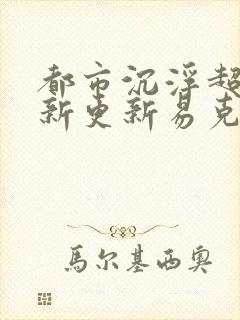 都市沉浮超
新更新易克
馬尔基西奥